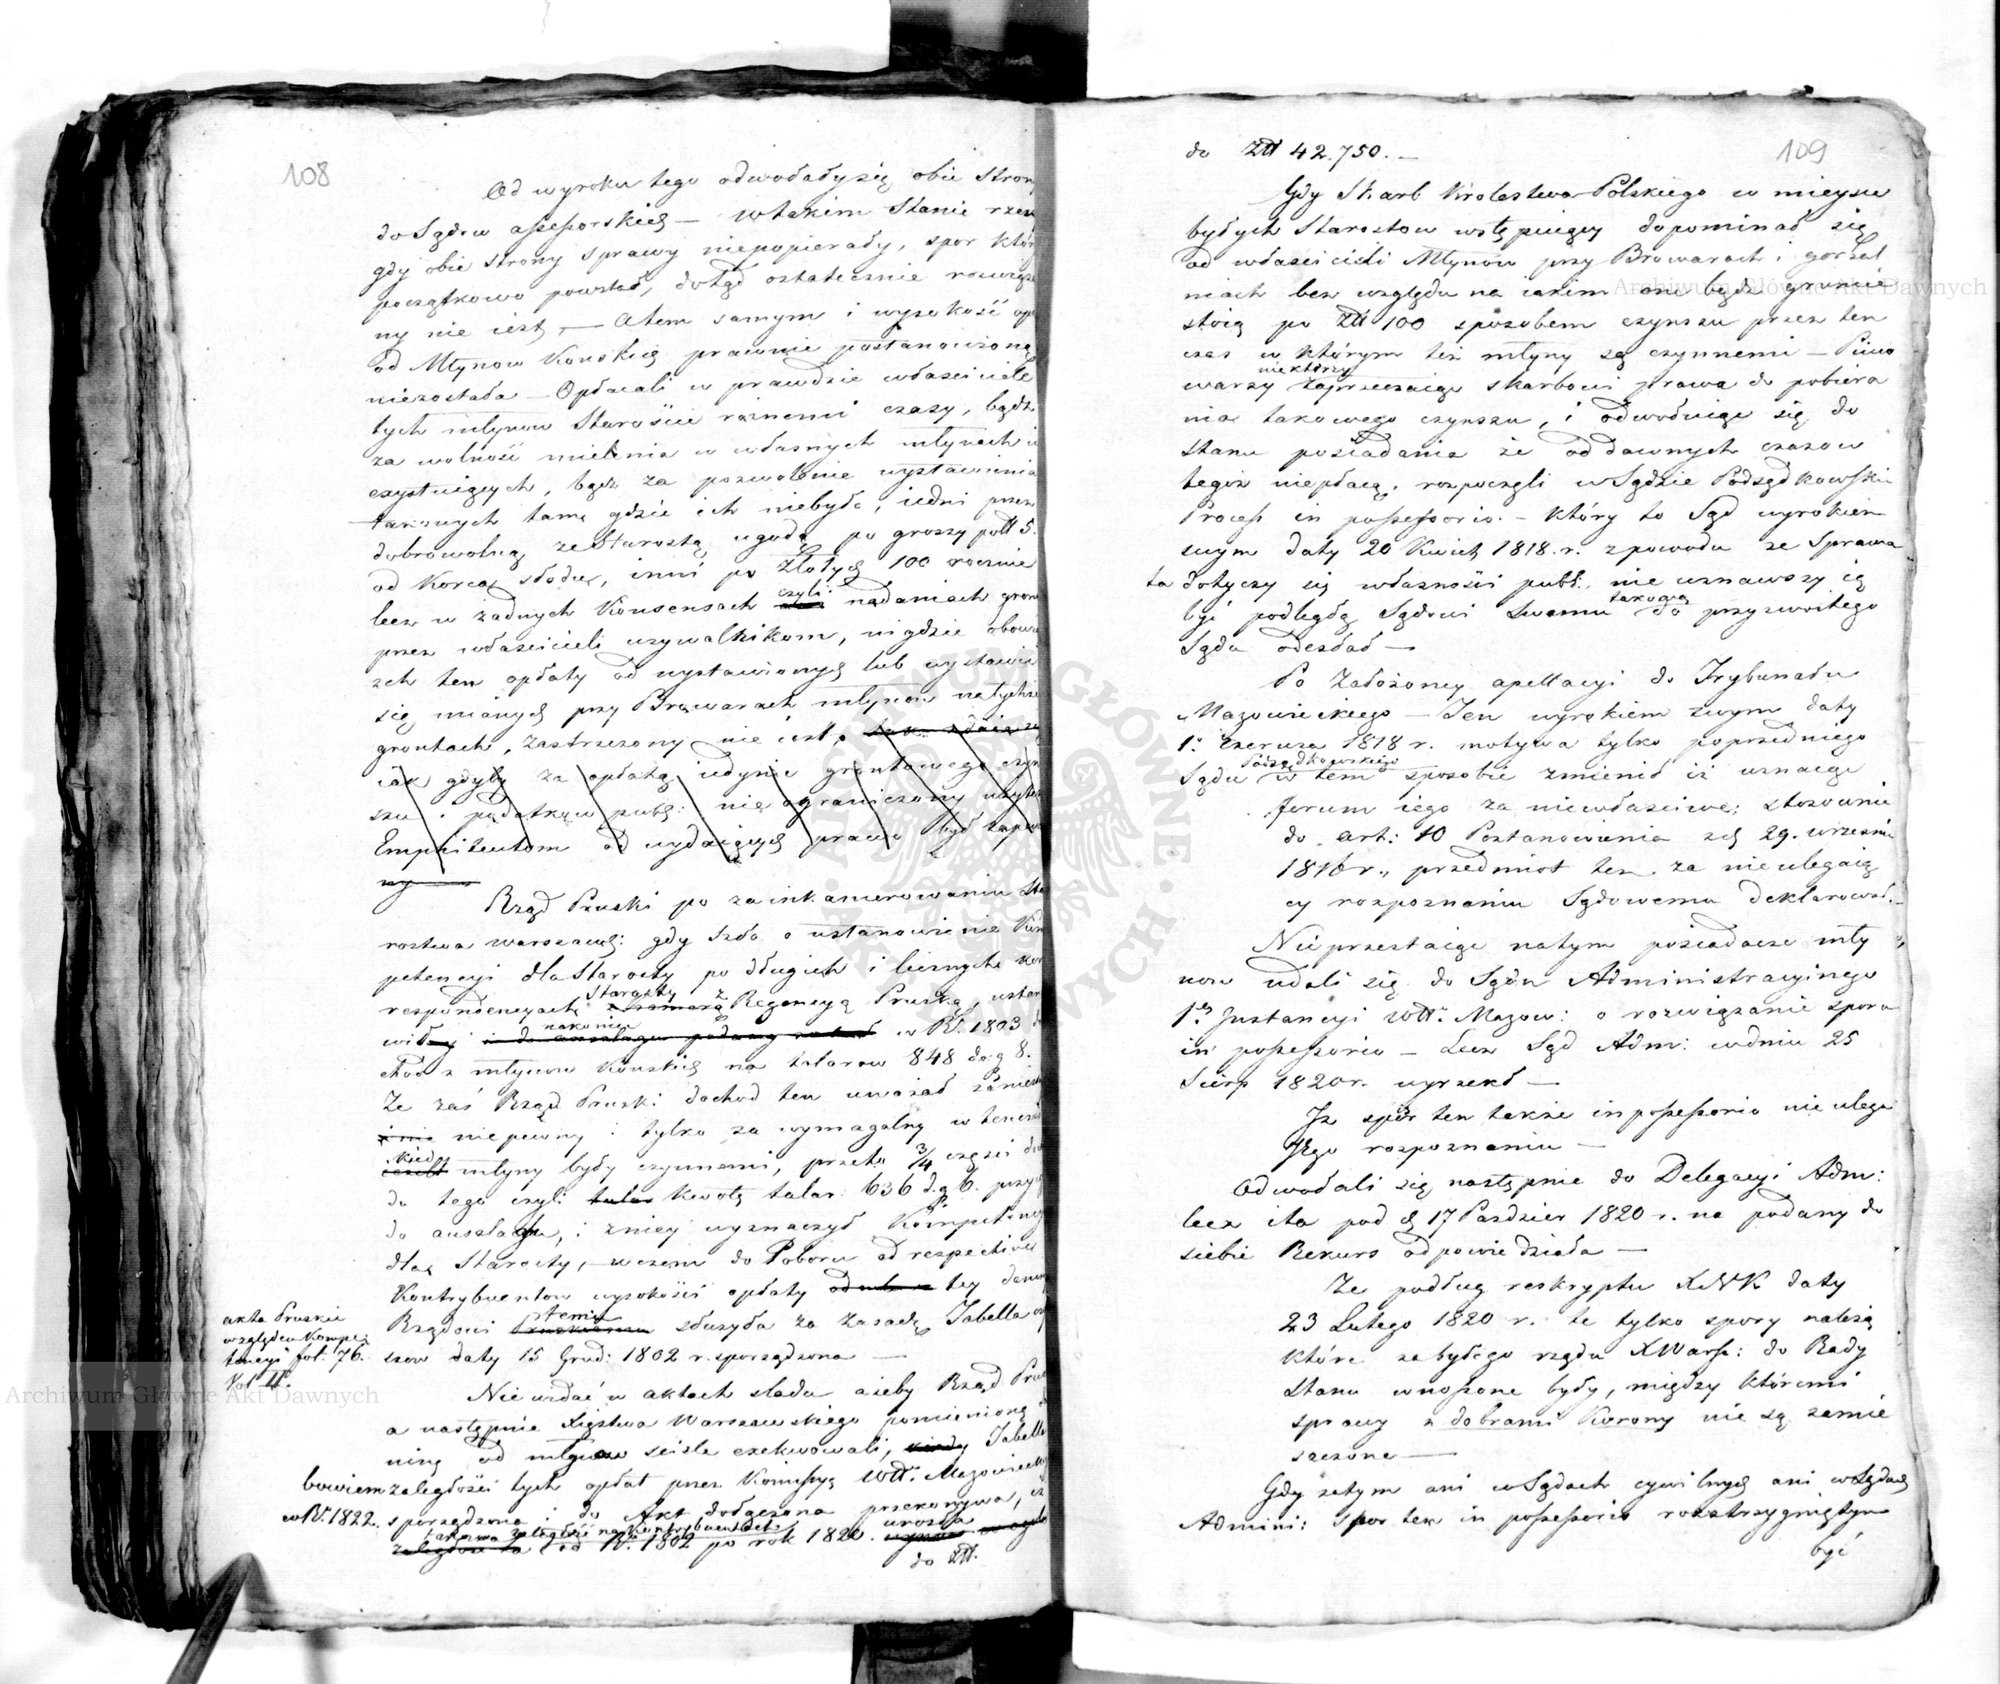 108
Od wyroku tego odwołały się obie Strony
do Sądów assessorskich — w takim Stanie rzeczy
gdy obie strony sprawy niepopierały, spor któr
początkowo powstał, dotąd ostatecznie rozwiąza
ny nie iest, — Atem samym i wysokość opł
od Młynow Konskich prawnie postanowioną
niezostała — Opłacali w prawdzie właściciele
tych młynow Staroście różnemi czasy, bądź
za wolność mielenia w własnych młynach i
exystuiących, bądź za pozwolenie wystawienia
takowych tam, gdzie ich niebyło, iedni przez
dobrowolną ze Starostą ugodę po groszy poll 5.
od Korca słodu, inni po Złotych 100 rocznie
lecz w żadnych Konsensach czyli nadaniach gron
przez właścicieli uzywalnikom, nigdzie obowi
zek ten opłaty od wystawionych lub wystawić
się mianych przy Browarach młynow natychże
grontach, zastrzezony nie iest,
iak gdyby za opłatą iedynie grontowego czyn
szu i podatków publ: nieograniczony użytek
Emphiteutom od wydaiących prawo był zapew
ny
Rząd Pruski po zainkamerowaniu Sta
rostwa warszaws: gdy szło o ustanowienie Kom
petencyi dla Starosty po długich i licznych kor
respondencyach Starosty z Regencyą Pruską, ustan
wił nakoniec w R. 1803 do
chod z młynow Konskich na talarow 848 d. g 8.
Że zaś Rząd Pruski dochod ten uważał za nie
niepewny i tylko za wymagalny w tenczas
kiedy młyny były czynnemi, przeto 3/4 części do
du tego czyli kwotę talar: 636 d. g 6. przy
do ausslagu, i z niey wyznaczył Kompetency
dla Starosty, — wczem do Poboru od respective
Kontrybuentow wysokości opłaty tey dawn
Rządowi temu służyła za zasadę Tabella o
szow daty 15 Grud: 1802 r. sporządzona —
akta Pruskie
względem Kompe
tencyi fol: 76.
Vol II.
Nie widać w aktach sladu ażeby Rząd Pru
a następnie Xięstwa Warszawskiego pomienioną
ninę od młynow sciśle exekwowali, Tabella
bowiem zaległości tych opłat przez Kommissyą Wtt. Mazowieck
w R. 1822. sporządzona i do Akt dołączona przekonywa, iż
takowa zaległość na Kontrybuentach od R. 1802 po rok 1820. urosła
do Złł.
109
do Złł 42.750. —
Gdy Skarb Krolestwa Polskiego w mieysce
byłych Starostow wstępuiący dopominał się
od właścicieli Młynow przy Browarach i gorzal
niach bez względu na iakim one bądź gruncie
stoią po Złł 100 sposobem czynszu przez ten
czas w którym też młyny są czynnemi — Piwo
warzy niektórzy zaprzeczaiąc skarbowi prawa do pobiera
nia takowego czynszu, i odwołuiąc się do
stanu posiadania że od dawnych czasow
tegoż niepłacą, rozpoczęli w Sądzie Podsędkowskim
Process in possessorio. — Który to Sąd wyrokiem
swym daty 20 Kwiet 1818. r. z powodu że Sprawa
ta dotyczy się własności publ. nie uznawszy ią
być podległą Sądowi Swemu takową do przyzwoitego
Sądu odesłał —
Po założoney apellacyi do Trybunału
Mazowieckiego — Ten wyrokiem swym daty
1. czerwca 1818 r. motywa tylko poprzedniego
Sądu Podsędkowskiego w tem sposobie zmienił iż uznaiąc
forum iego za niewłaściwe; stosownie
do art: 10 Postanowienia zd 29. września
1816 r., przedmiot ten za nieulegaią
cy rozpoznaniu Sądowemu deklarował. —
Nieprzestaiąc natym posiadacze mły
now udali się do Sądu Administracyinego
1ey Instancyi Wtt. Mazow: o rozwiązanie sporu
in possessorio — Lecz Sąd Adm: w dniu 25
Sierp 1820 r. wyrzekł —
Iż spór ten także in possessorio nie ulega
Jego rozpoznaniu —
Odwołali się następnie do Delegacyi Adm:
lecz i ta pod d 17 Pazdzier 1820 r. na podany do
siebie Rekurs odpowiedziała —
Że podług reskryptu XNK daty
23 Lutego 1820 r. te tylko spory należą
które za byłego rządu XWarsz: do Rady
Stanu wnoszone były, między któremi
sprawy z dobrami Korony nie są zamie
szczone —
Gdy zatym ani w Sądach cywilnych ani w Sądach
Admini: Spor ten in possessorio rozstrzygniętym
być
Archiwum Główne Akt Dawnych
Archiwum Główne Akt Dawnych